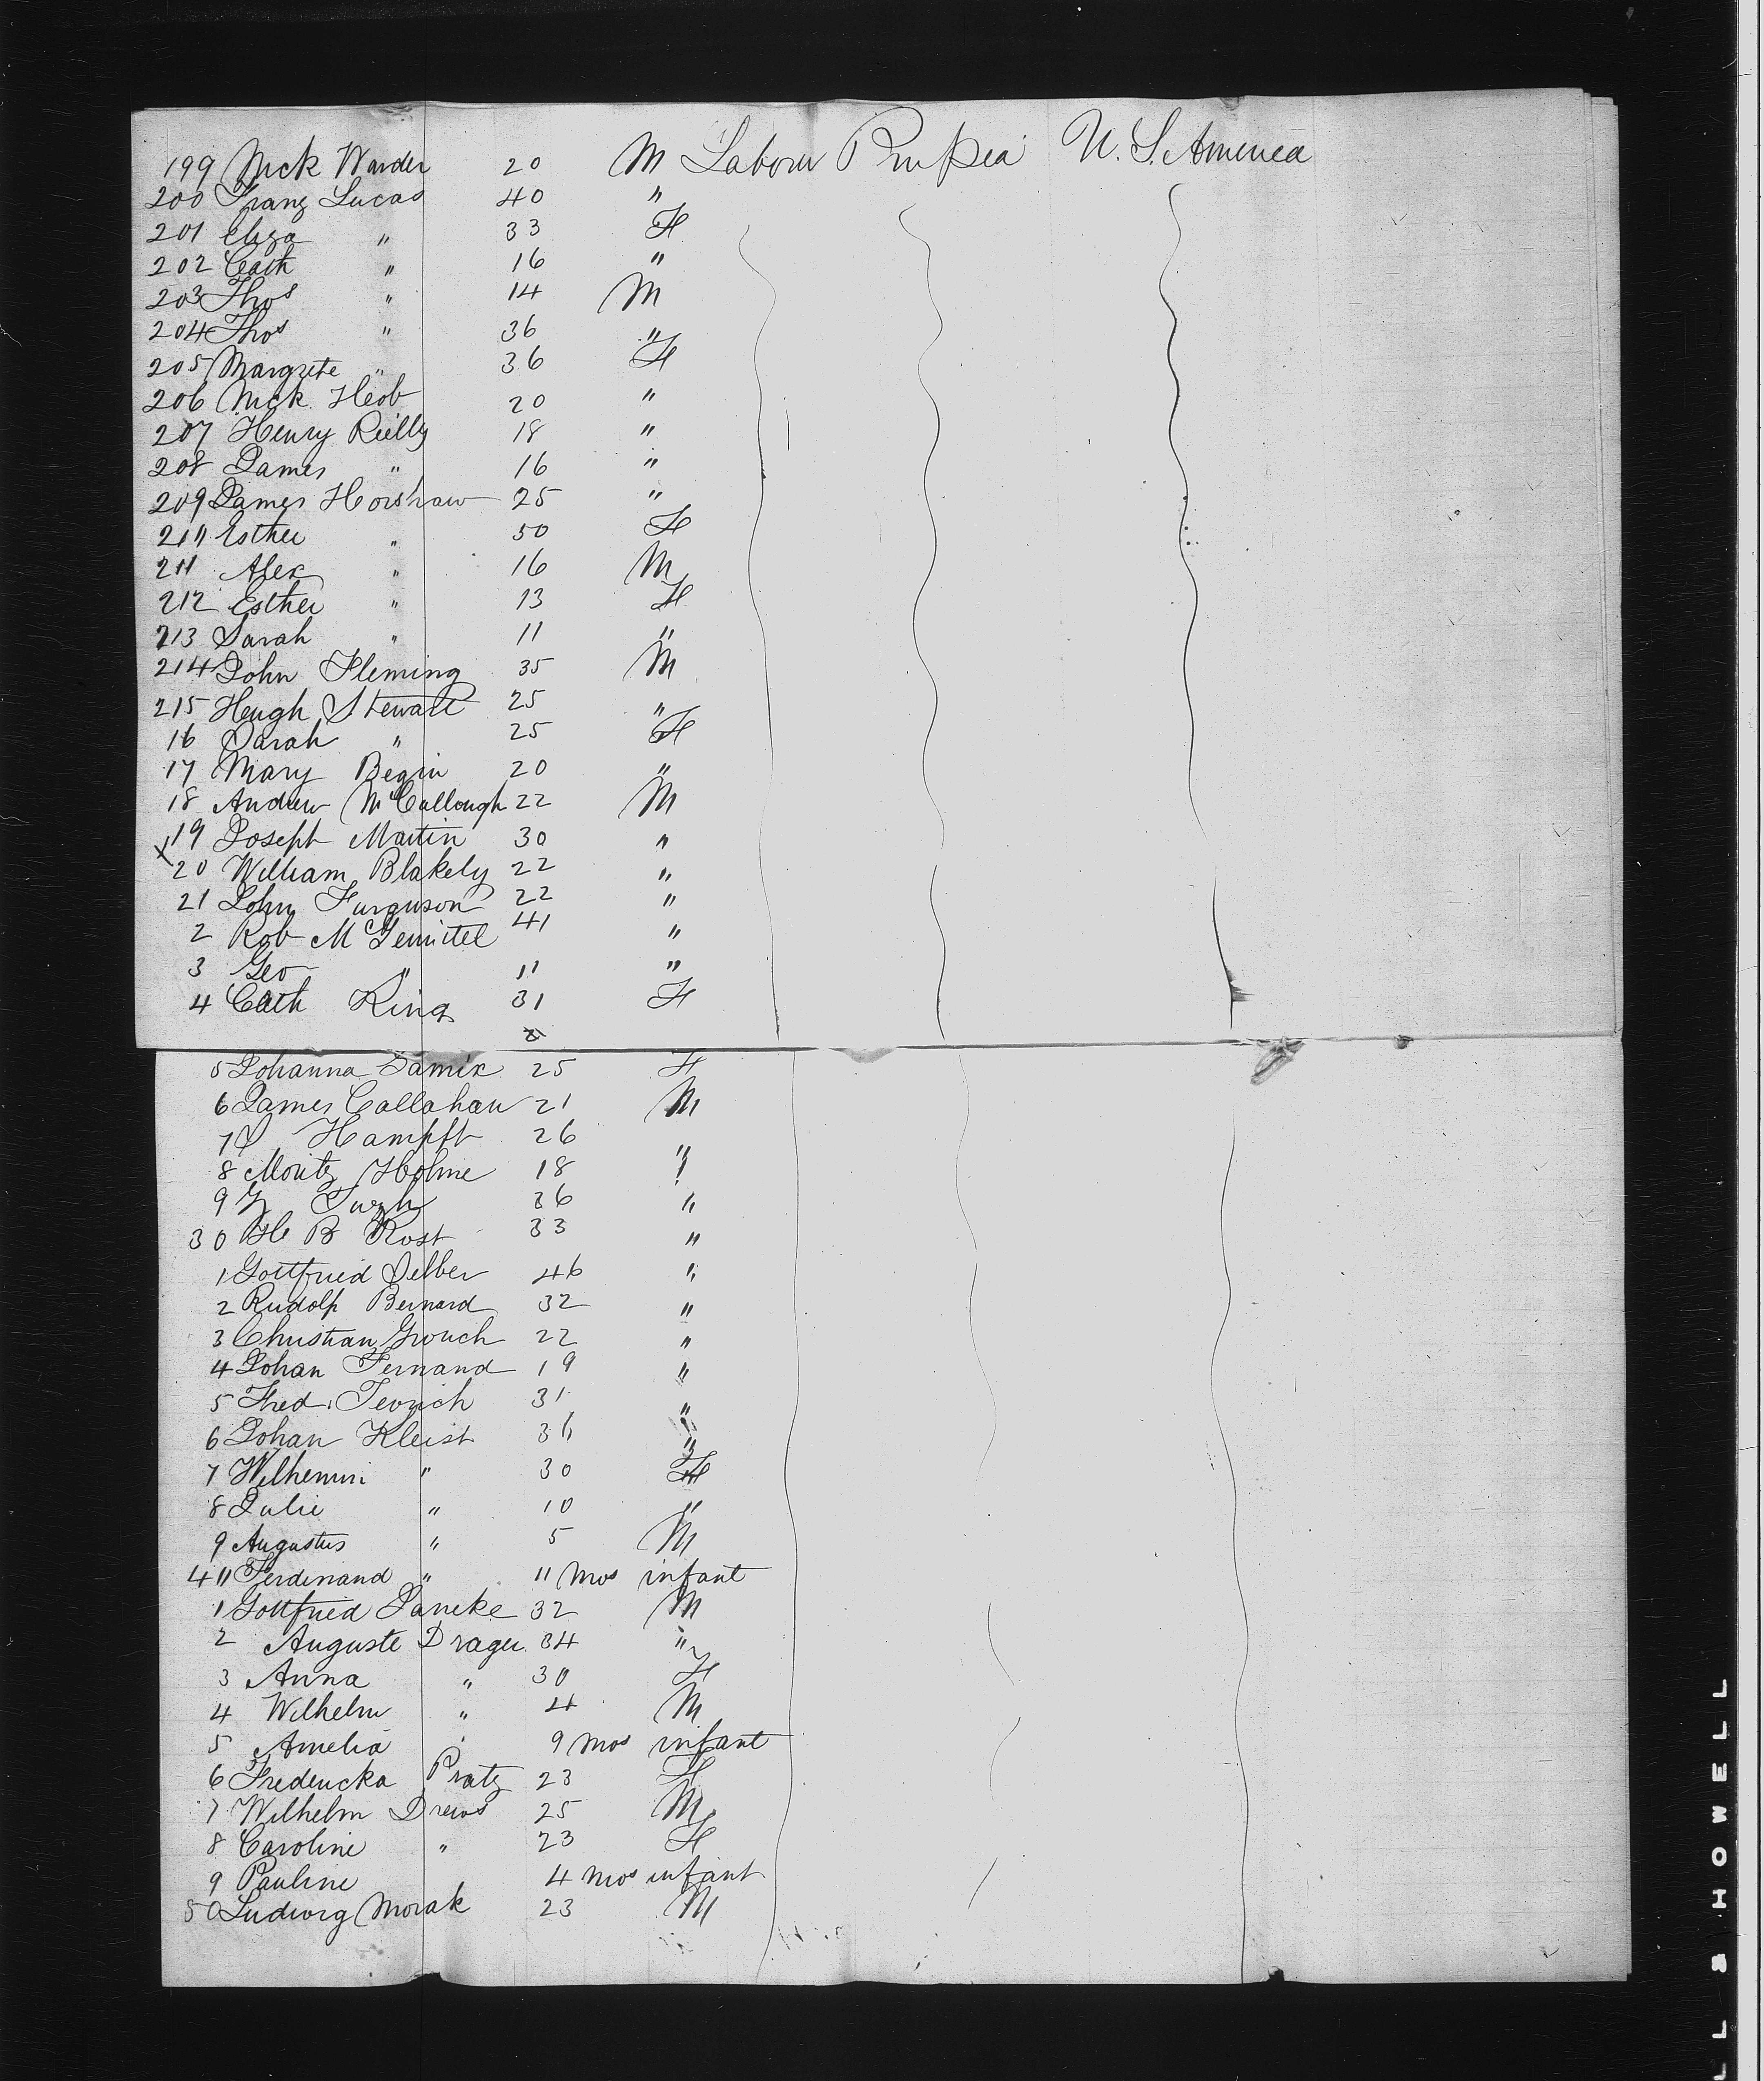 199 Nick Warder 20 M Labour Prussia U. S. America
200 Franz Lucas 40 "
201 Eliza " 33 F
202 Cath " 16 "
203 Thos " 14 M
204 Thos " 36 "
205 Margrete " 36 F
206 Nick Heob 20 "
207 Henry Reilly 18 "
208 James " 16 "
209 James Horshaw 25 "
210 Esther " 50 F
211 Alex " 16 M
212 Esther " 13 F
213 Sarah " 11 "
214 John Fleming 35 M
215 Hugh Stewart 25 "
16 Sarah " 25 F
17 Mary Begin 20 "
18 Andrew McCallough 22 M
19 Joseph Martin 30 "
x 20 William Blakely 22 "
21 John Furguson 22 "
2 Rob 41 "
3 Geo " 11 "
4 Cath King 31 F
5 Johanna 25 F
6 James Callahan 21 M
7 J Hampft 26
8 Moritz Holme 18 "
9 36 "
30 H B Rost 33 "
1 Gottfried Selber 46 "
2 Rudolf Bernard 32 "
3 Christian Grouch 22 "
4 Johan Fernand 19 "
5 Fred. 31 "
6 Johan Kleist 36 "
7 Wilhemin " 30 F
8 Julie " 10 "
9 Augustus " 5 M
40 Ferdinand " 11 mos infant
1 Gottfried Janeke 32 M
2 Auguste Drager 34 "
3 Anna " 30 F
4 Wilhelm " 4 M
5 Amelia " 9 mos infant
6 Fredericka Pratz 23 F
7 Wilhelm Drews 25 M
8 Caroline " 23 F
9 Pauline 4 mos infant
50 Ludwig Morak 23 M
LL & HOWELL